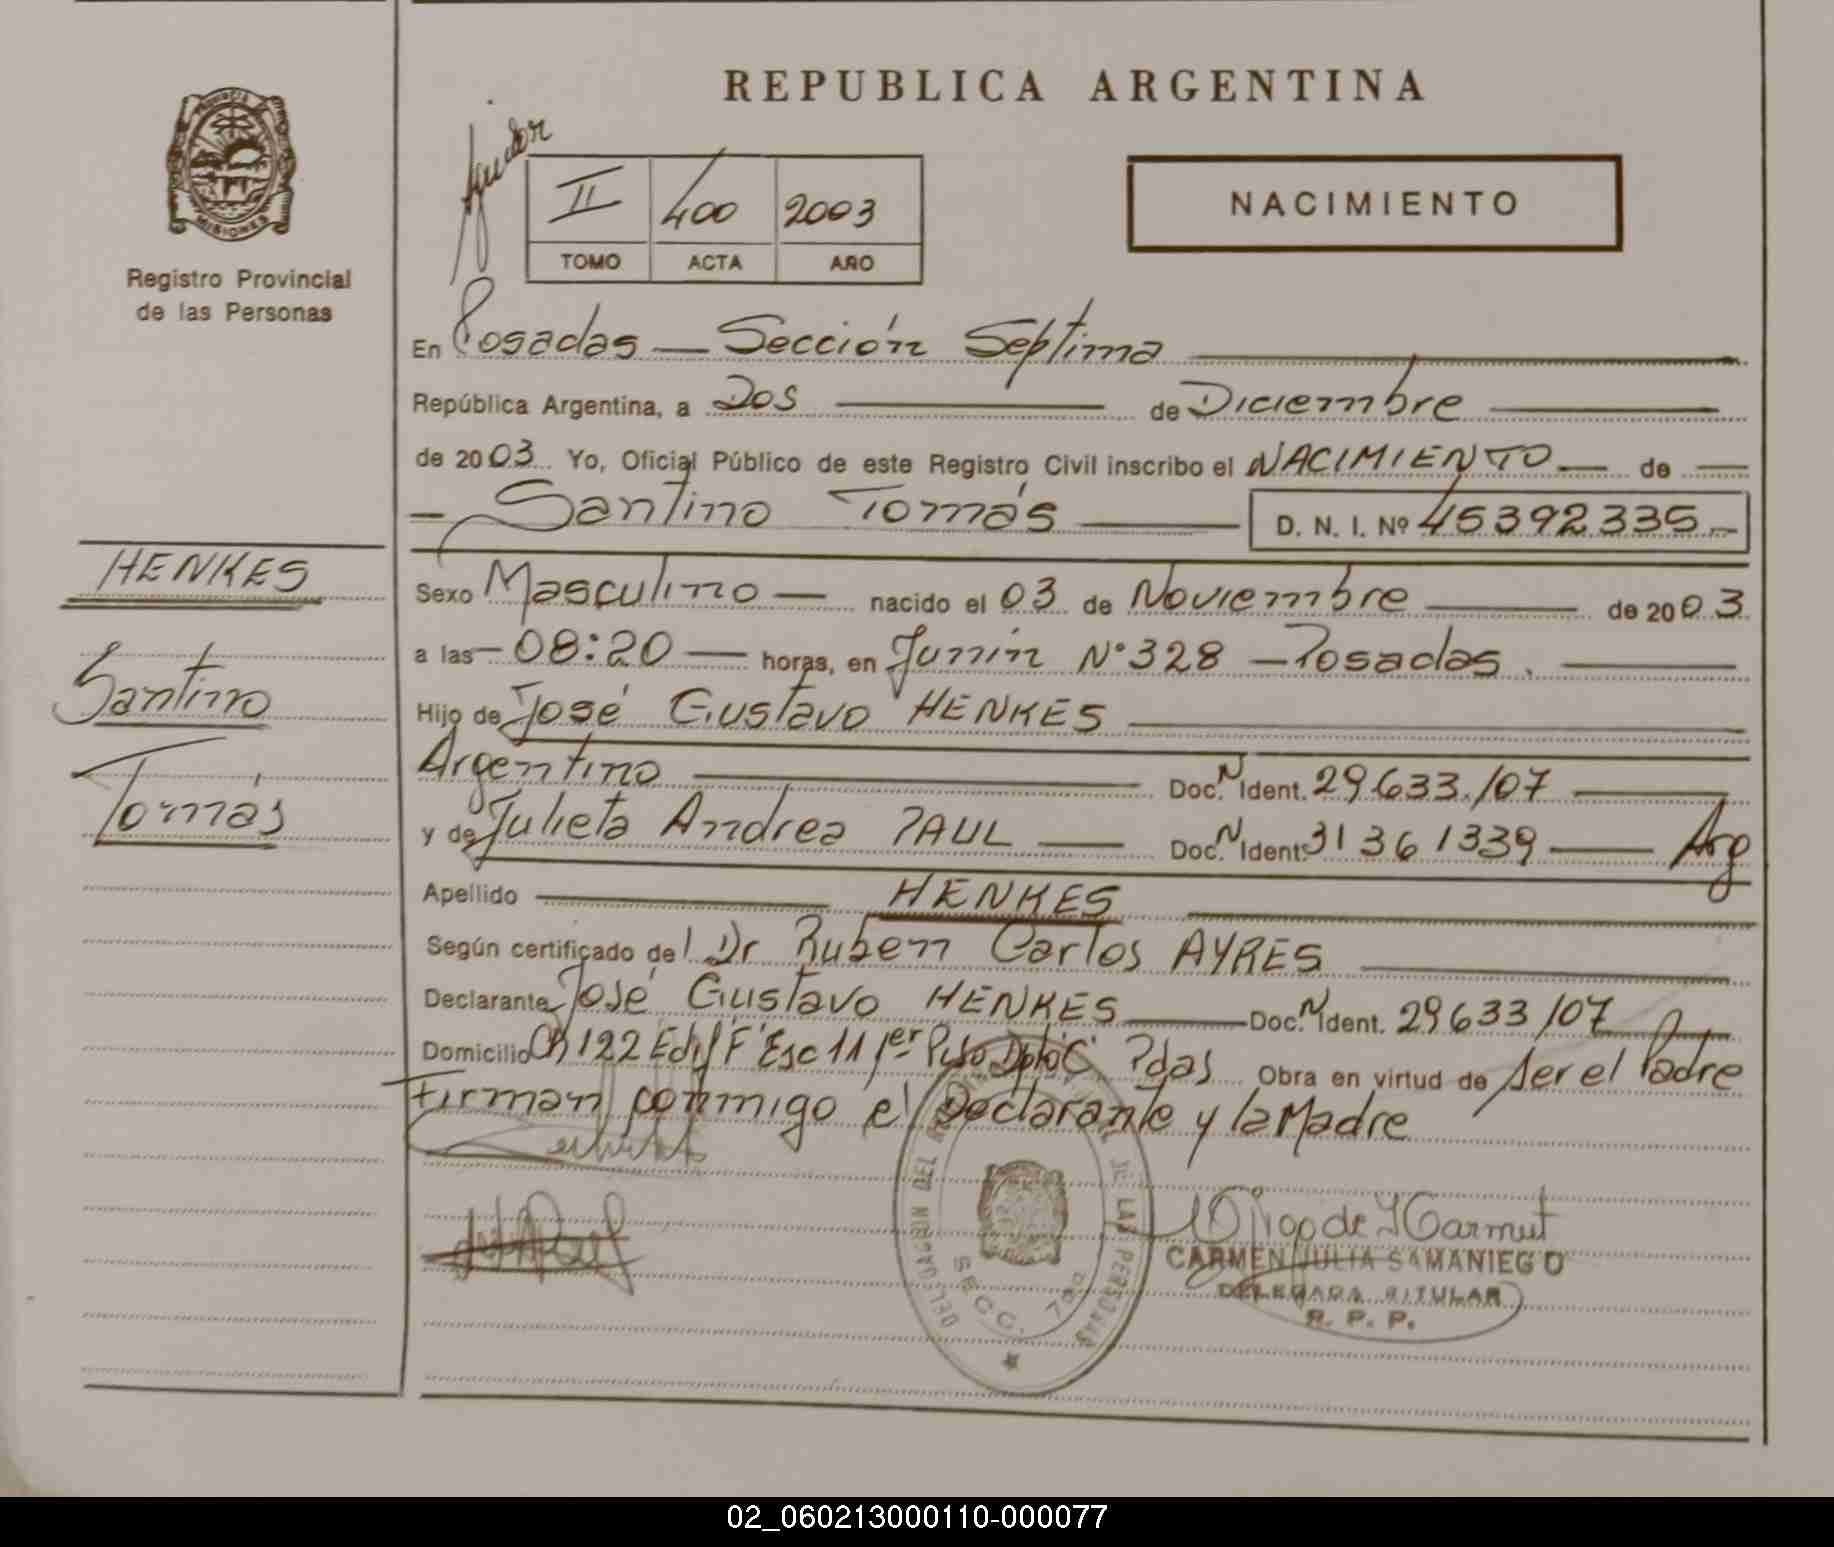 REPUBLICA ARGENTINA
PROVINCIA
MISIONES
Registro Provincial
de las Personas
II 400 2003
TOMO ACTA AÑO
NACIMIENTO
En Posadas — Sección Septima
República Argentina, a Dos de Diciembre
de 2003 Yo, Oficial Público de este Registro Civil inscribo el NACIMIENTO — de —
— Santino Tomás — D. N. I. Nº 45392335.-
HENKES
Santino
Tomás
Sexo Masculino — nacido el 03 de Noviembre — de 2003
a las — 08:20 — horas, en Junín N° 328 — Posadas. —
Hijo de José Gustavo HENKES
Argentino — Doc. N Ident. 29.633.107 —
y de Julieta Andrea PAUL — Doc. N Ident. 31361339 — Arg
Apellido — HENKES —
Según certificado del Dr Ruben Carlos AYRES —
Declarante José Gustavo HENKES — Doc. N Ident. 29633107
Domicilio Ch 122 Edif "F" Esc 11 1er Piso Dpto "C" Pdas Obra en virtud de ser el Padre
Firman conmigo el Declarante y la Madre
DELEGACION DEL DE LAS PERSONAS
SECC. 7ma
CARMEN JULIA SAMANIEGO
DELEGADA TITULAR
R. P. P.
02_060213000110-000077